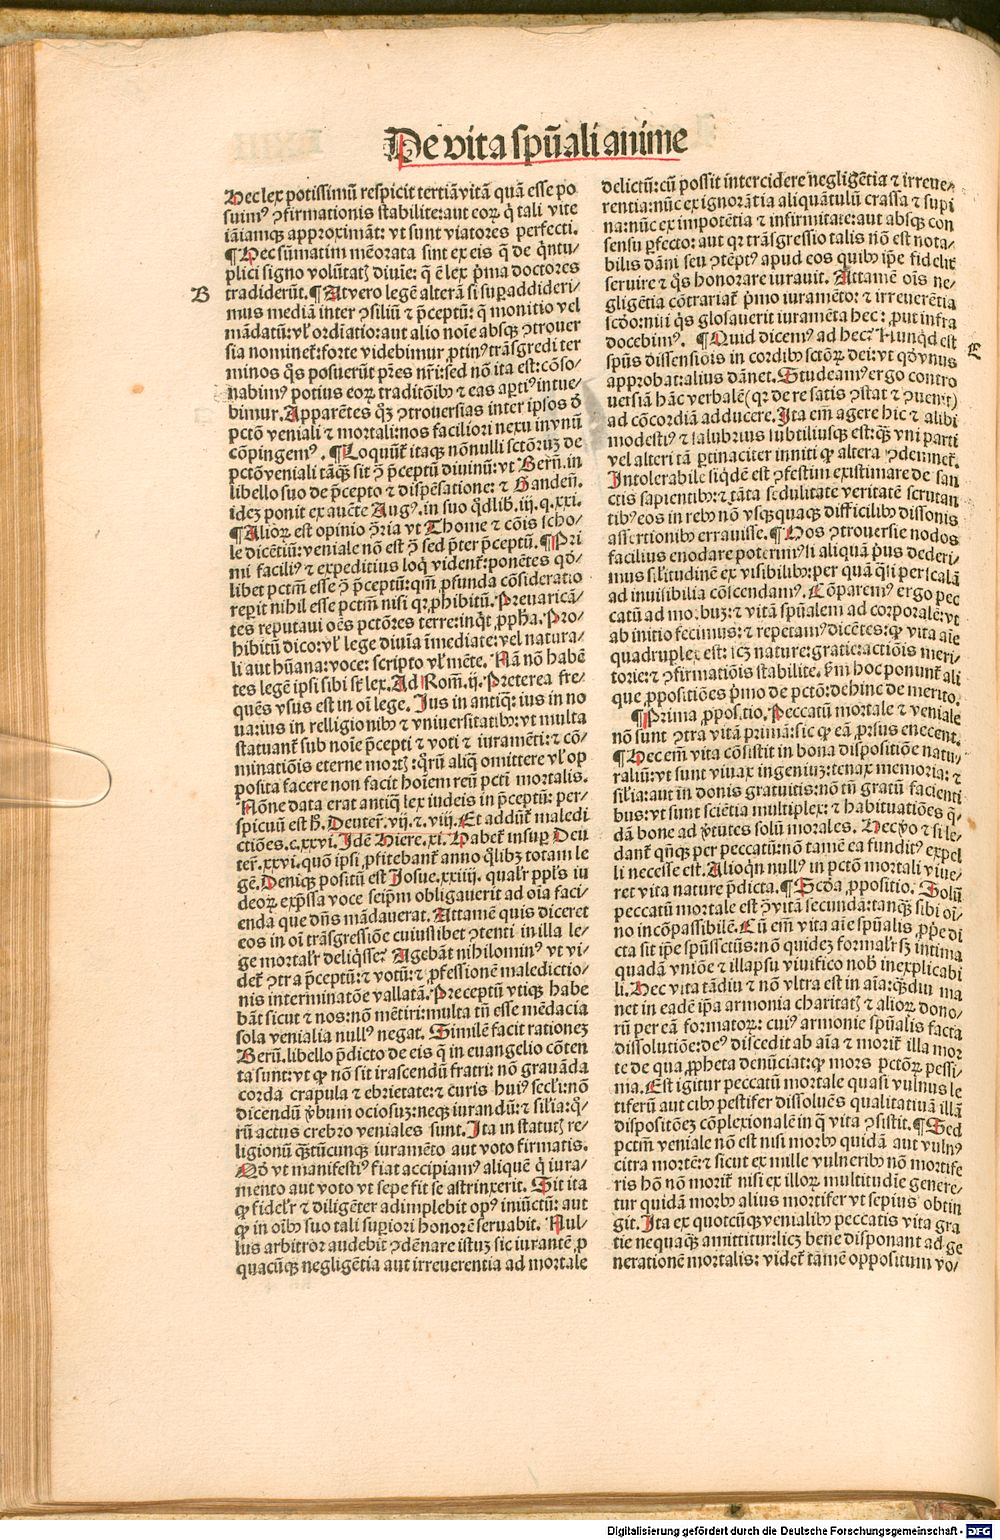 De vita spũali anime
Hec lex potissimũ respicit tertiã vitã quã esse po
suimꝰ ꝯfirmationis stabilite: aut eoꝝ q̇ tali vite
iãiamqꝫ approximãt: vt sunt viatores perfecti.
¶ Hec sũmatim mẽorata sint ex eis q̃ de q̇ntu/
plici signo volũtatꝭ diuĩe: q̃ ẽ lex ṗma doctores
B
tradiderũt. ¶ At vero legẽ alterã si suꝑaddideri/
mus mediã inter ꝯsiliũ ⁊ p̃ceptũ: q̃ monitio vel
mãdatũ: vl̃ ordĩatio: aut alio noĩe absqꝫ ꝯtrouer
sia nominet᷑: forte videbimur ꝓtinꝰ trãsgredi ter
minos q̇s posuerũt pr̃es nr̃i: sed nõ ita est: cõso/
nabimꝰ potius eoꝝ traditõibꝰ ⁊ eas aꝑtiꝰ intue/
bimur. Apparẽtes qꝫ ꝯtrouersias inter ipsos ð
pctõ veniali ⁊ mortali: nos faciliori nexu in vnũ
cõpingemꝰ. ¶ Loquũt᷑ itaqꝫ nõnulli sctõꝝ de
pctõ veniali tãqꝫ sit ꝯ̃ p̃ceptũ diuinũ: vt Berñ. in
libello suo de p̃cepto ⁊ dispẽsatione: ⁊ Gandeñ.
idez ponit ex auc̃te Augꝰ. in suo q̇dlib̃. iij. q. xxi.
¶ Alioꝝ est opinio ꝯ̃ria vt Thome ⁊ cõis scho/
le dicẽtiũ: veniale nõ est ꝯ̃ sed p̃ter p̃ceptũ. ¶ Pri
mi faciliꝰ ⁊ expeditius loq̇ vident᷑: ponẽtes q̇d/
libet pctm̃ esse ꝯ̃ p̃ceptũ: qm̃ ꝓfunda cõsideratio
reꝑit nihil esse pctm̃ nisi qꝛ ꝓhibitũ. Preuaricã/
tes reputaui oẽs pctõres terre: inq̇t ꝓph̃a. Pro/
hibitũ dico: vl̃ lege diuĩa ĩmediate: vel natura/
li aut hũana: voce: scripto vl̃ mẽte. Nã nõ habẽ
tes legẽ ipsi sibi st̃ lex. Ad Rom̃. ij. Preterea fre/
quẽs vsus est in oĩ lege. Ius in antiq̃: ius in no
ua: ius in relligionibꝰ ⁊ vniuersitatibꝰ: vt multa
statuant᷑ sub noĩe p̃cepti ⁊ voti ⁊ iuramẽti: ⁊ cõ/
minatiõis eterne mortꝭ: q̃rũ aliq̃ omittere vl̃ op
posita facere non facit hoĩem reũ pcti mortalis.
Nõne data erat antiq̃ lex iudeis in p̃ceptũ: per/
spicuũ est h̃. Deuter̃. vij. ⁊. viij. Et addũt᷑ maledi
ctiões. c. xxvi. Idẽ Hiere. xi. Habet᷑ insuꝑ Deu
ter̃. xxvi. quõ ipsi ꝓfitebant᷑ anno q̇libꝫ totam le
gẽ. Deniqꝫ positũ est Josue. xxiiij. qual̃r ppl̃s iu
deoꝝ exp̃ssa voce seip̃m obligauerit ad oĩa faci/
enda que dñs mãdauerat. Attamẽ quis diceret
eos in oĩ trãsgressiõe cuiuslibet ꝯtenti in illa le/
ge mortal̃r deliq̇sse: Agebãt nihilominꝰ vt vi/
det᷑ ꝯtra p̃ceptũ: ⁊ votũ: ⁊ ꝓfessionẽ maledictio/
nis interminatõe vallatã. Preceptũ vtiqꝫ habe
bãt sicut ⁊ nos: nõ mẽtiri: multa tñ esse mẽdacia
sola venialia nullꝰ negat. Similẽ facit rationez
Berñ. libello p̃dicto de eis q̃ in euangelio cõten
ta sunt: vt ꝙ nõ sit irascendũ fratri: nõ grauãda
corda crapula ⁊ ebrietate: ⁊ curis huiꝰ secl̃i: nõ
dicendũ ṽbum ociosuz: neqꝫ iurandũ: ⁊ sil̃ia: q̃/
rũ actus crebro veniales sunt. Ita in statutꝭ re/
ligionũ q̃tũcunqꝫ iuramẽto aut voto firmatis.
Qð vt manifestiꝰ fiat accipiamꝰ aliquẽ q̇ iura/
mento aut voto vt sepe fit se astrinxerit. Sit ita
ꝙ fidel̃r ⁊ diligẽter adimplebit opꝰ iniũctũ: aut
ꝙ in oĩbꝰ suo tali suꝑiori honorẽ seruabit. Nul/
lus arbitror audebit ꝯdẽnare istuz sic iurantẽ ꝓ
quacũqꝫ negligẽtia aut irreuerentia ad mortale
delictũ: cũ possit intercidere negligẽtia ⁊ irreue/
rentia: nũc ex ignorãtia aliquãtulũ crassa ⁊ supi
na: nũc ex impotẽtia ⁊ infirmitate: aut absqꝫ con
sensu ꝑfecto: aut qꝛ trãsgressio talis nõ est nota/
bilis dãni seu ꝯtẽptꝰ apud eos quibꝰ ip̃e fidel̃r
seruire ⁊ q̇s honorare iurauit. Attamẽ oĩs ne/
gligẽtia cõtrariat᷑ ṗmo iuramẽto: ⁊ irreuerẽtia
scðo: nisi q̇s glosauerit iuramẽta hec: ꝓut infra
docebimꝰ. ¶ Quid dicemꝰ ad hec? Nunq̇d est
E
spũs dissensiõis in cordibꝰ sctõꝝ dei: vt qðvnus
approbat: alius dãnet. Studeamꝰ ergo contro
uersiã hãc verbalẽ (qꝛ de re satis ꝯstat ⁊ ꝯuenit)
ad cõcordiã adducere. Ita em̃ agere hic ⁊ alibi
modestiꝰ ⁊ salubrius subtiliusqꝫ est: qꝫ vni parti
vel alteri tã ꝑtinaciter inniti ꝙ altera ꝯdemnet᷑.
Intolerabile siq̇dẽ est ꝯfestim existimare de san
ctis sapientibꝰ: ⁊ tãta sedulitate veritatẽ scrutan
tibꝰ eos in rebꝰ nõ vsqꝫquaqꝫ difficilibꝰ dissonis
assertionibꝰ errauisse. ¶ Hos ꝯtrouersie nodos
facilius enodare poterimꝰ si aliquã p̃us dederi/
mus sil̃itudinẽ ex visibilibꝰ: per quã q̃si per scalã
ad inuisibilia cõscendamꝰ. Cõparemꝰ ergo pec
catũ ad morbuz: ⁊ vitã spũalem ad corporalẽ: vt
ab initio fecimus: ⁊ repetamꝰ dicẽtes: ꝙ vita aĩe
quadruplex est: scz nature: gratie: actiõis meri/
torie: ⁊ ꝯfirmatiõis stabilite. Fm̃ hoc ponunt᷑ ali
que ꝓpositiões ṗmo de pctõ: dehinc de merito.
¶ Prima ꝓpositio. Peccatũ mortale ⁊ veniale
nõ sunt ꝯtra vitã primã: sic ꝙ eã ꝓrsus enecent.
¶ Hec em̃ vita cõsistit in bona dispositiõe natu/
raliũ: vt sunt viuax ingeniuz: tenax memoria: ⁊
sil̃ia: aut in donis gratuitis: nõ tñ gratũ facienti
bus: vt sunt sciẽtia multiplex: ⁊ habituatiões q̃/
dã bone ad ṽtutes solũ morales. Hec ṽo ⁊ si le/
dant᷑ qñqꝫ per peccatũ: nõ tamẽ ea funditꝰ expel
li necesse est. Alioq̇n nullꝰ in pctõ mortali viue/
ret vita nature p̃dicta. ¶ Scða ꝓpositio. Solũ
peccatũ mortale est ꝯ̃ vitã secundã: tanqꝫ sibi oĩ/
no incõpassibile. Cũ em̃ vita aĩe spũalis ꝓp̃e di
cta sit ip̃e spũssctũs: nõ quidez formal̃r sz intima
quadã vniõe ⁊ illapsu viuifico nob̃ inexplicabi
li. Hec vita tãdiu ⁊ nõ vltra est in aĩa: qꝫdiu ma
net in eadẽ ip̃a armonia charitatꝭ ⁊ alioꝝ dono/
rũ per eã formatoꝝ: cuiꝰ armonie spũalis facta
dissolutiõe: deꝰ discedit ab aĩa ⁊ morit᷑ illa mor
te de qua ꝓpheta denũciat: ꝙ mors pctõꝝ pessi/
ma. Est igitur peccatũ mortale quasi vulnus le
tiferũ aut cibꝰ pestifer dissoluẽs qualitatiuã illã
dispositõez cõplexionalẽ in q̃ vita ꝯsistit. ¶ Sed
pctm̃ veniale nõ est nisi morbꝰ quidã aut vulnꝰ
citra mortẽ: ⁊ sicut ex mille vulneribꝰ nõ mortife
ris hõ nõ morit᷑ nisi ex illoꝝ multitudĩe genere/
tur quidã morbꝰ alius mortifer vt sepius obtin
git. Ita ex quotcũqꝫ venialibꝰ peccatis vita gra
tie nequaqꝫ amittitur: licz bene disponant ad ge
nerationẽ mortalis: videt᷑ tamẽ oppositum vo/
Digitalisierung gefördert durch die Deutsche Forschungsgemeinschaft - DFG